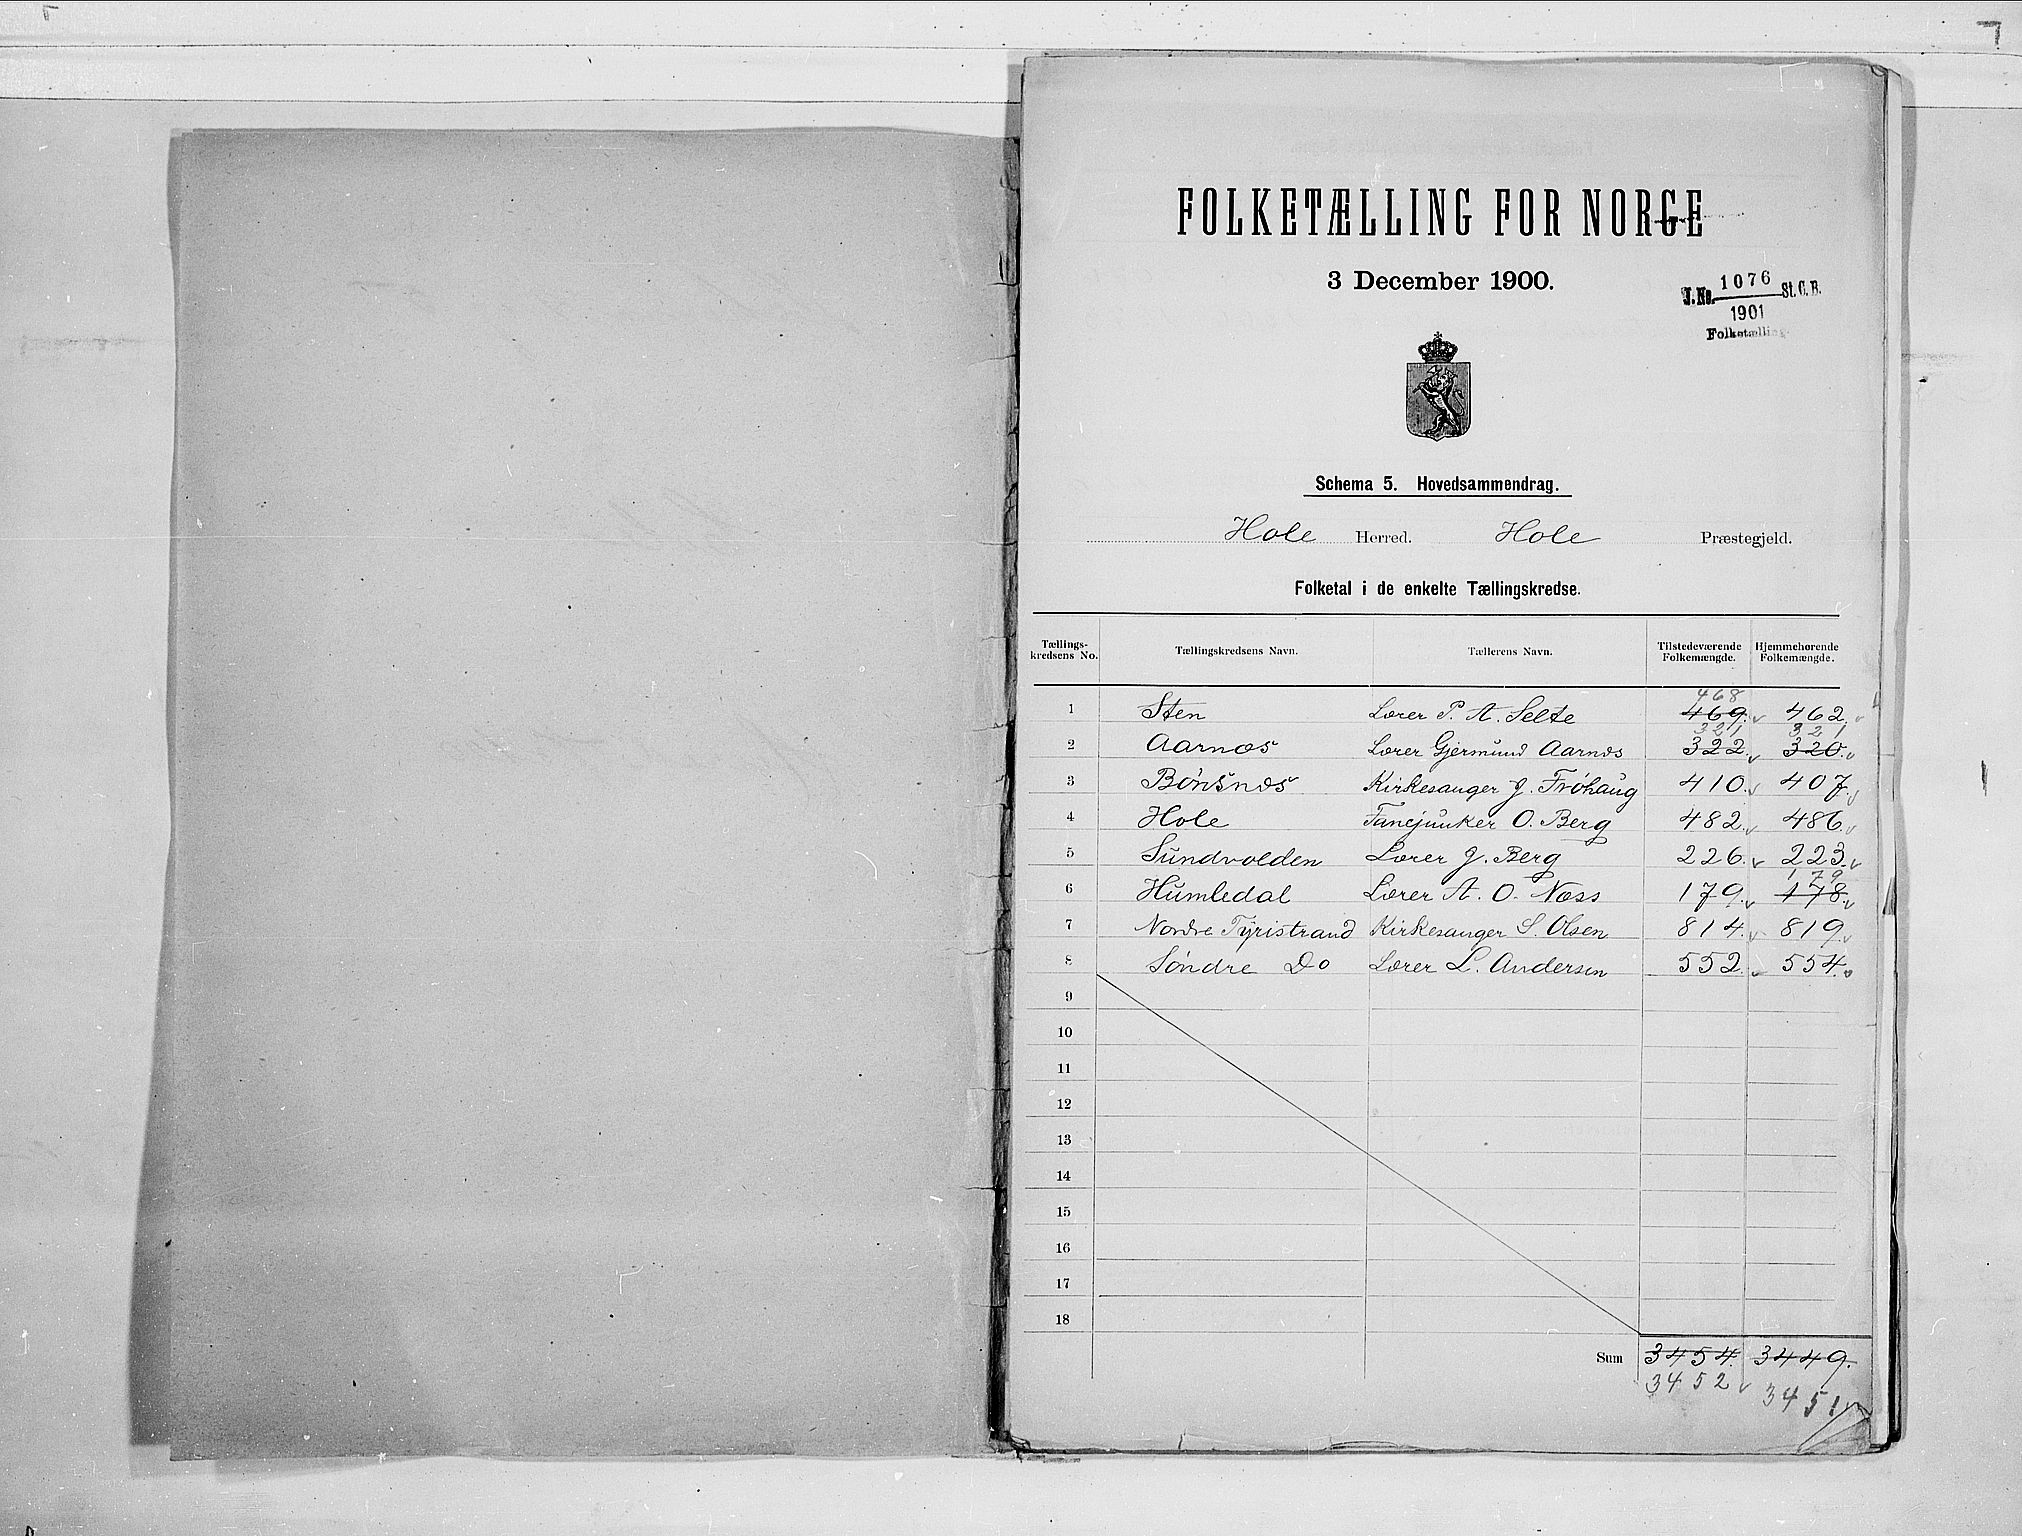 FOLKETÆLLING FOR NORGE
3 December 1900.
J. No. 1076 St. C. B.
1901
Folketælling
Schema 5. Hovedsammendrag.
Hole Herred. Hole Præstegjeld.
Folketal i de enkelte Tællingskredse.
Tællings-kredsens No. Tællingskredsens Navn. Tællerens Navn. Tilstedeværende Folkemængde. Hjemmehørende Folkemængde.
468
1 Sten Lærer P. A. Selte 469. 462.
321 321
2 Aarnæs Lærer Gjermund Aarnæs 322. 320.
3 Bønsnæs Kirkesanger J. Frøhaug 410. 407.
4 Hole Fanejunker O. Berg 482. 486.
5 Sundvolden Lærer J. Berg 226. 223.
179
6 Humledal Lærer A. O. Næss 179. 178.
7 Nordre Tyristrand Kirkesanger S. Olsen 814. 819.
8 Søndre Do Lærer L. Andersen 552. 554.
9
10
11
12
13
14
15
16
17
18
Sum 3454. 3449.
3452 3451